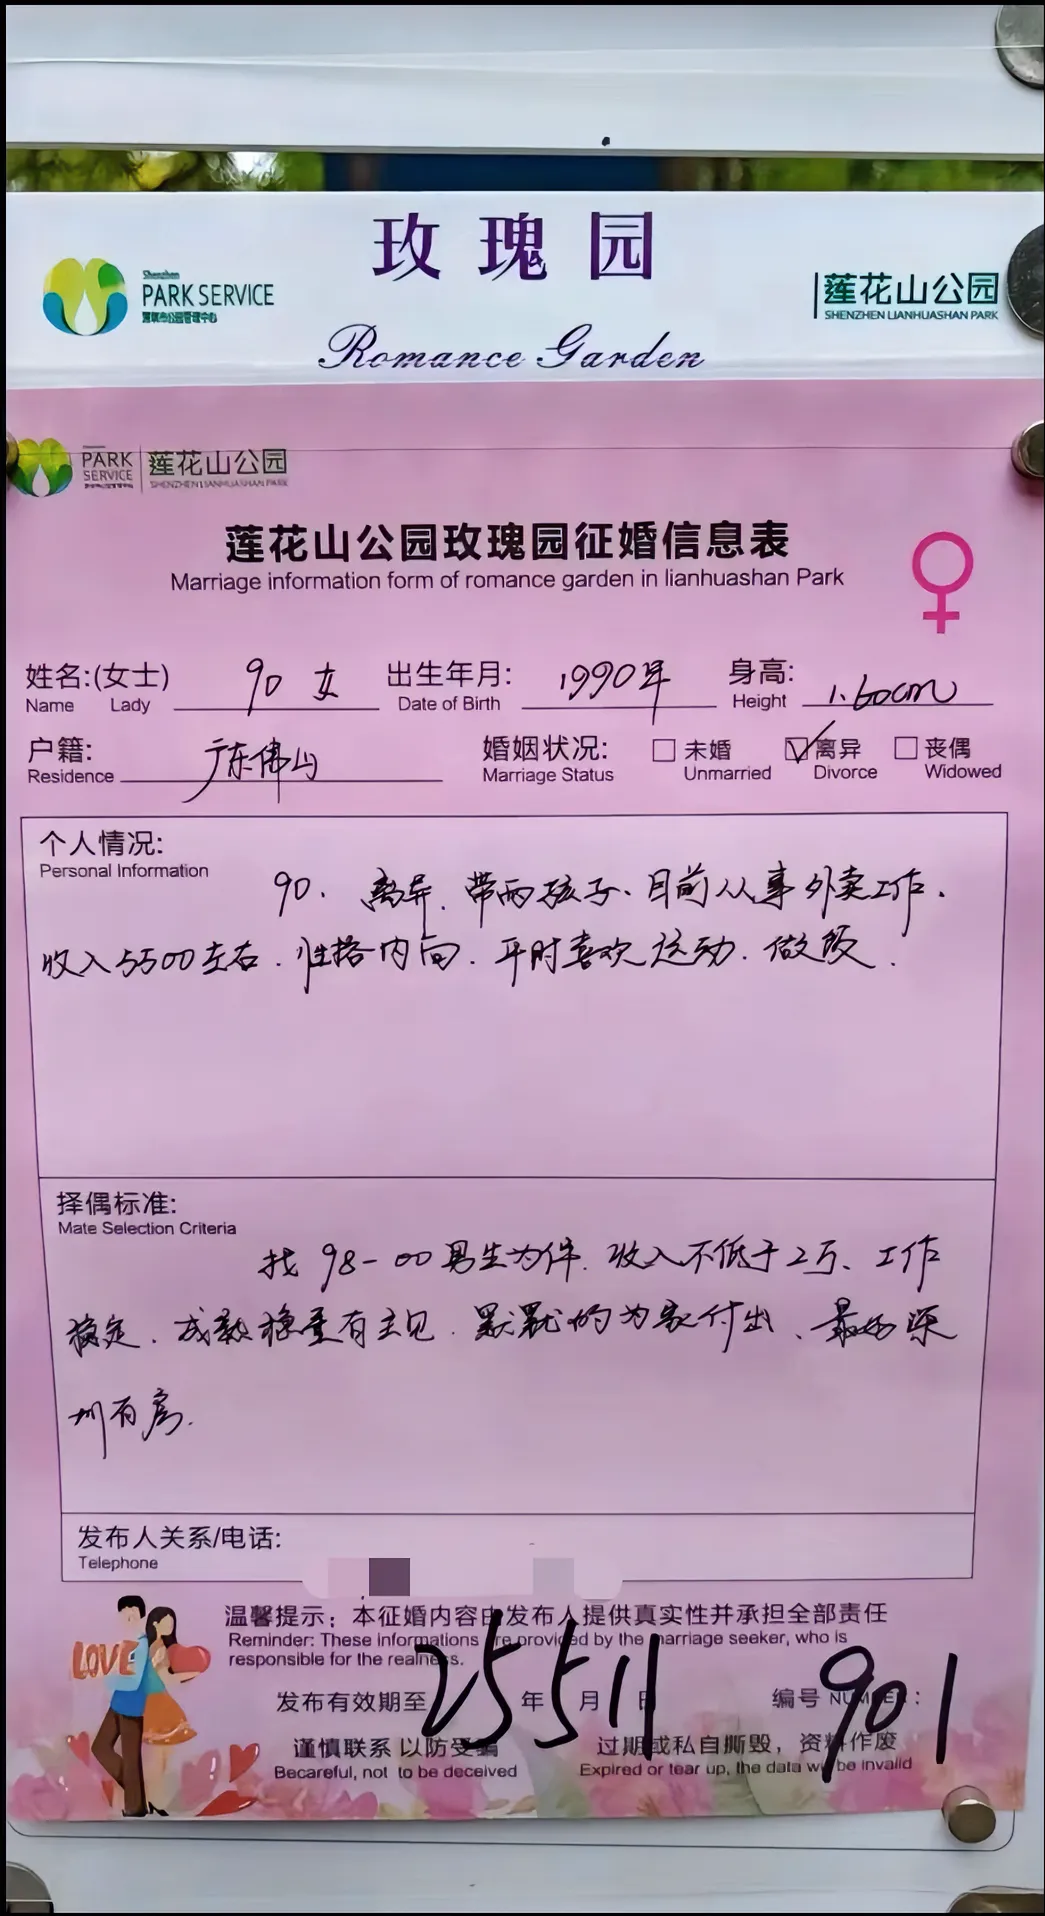 玫瑰园
Romance Garden
Shenzhen
PARK SERVICE
深圳市公园管理中心
莲花山公园
SHENZHEN LIANHUASHAN PARK
PARK
SERVICE
莲花山公园
SHENZHEN LIANHUASHAN PARK
莲花山公园玫瑰园征婚信息表
Marriage information form of romance garden in lianhuashan Park
姓名:(女士) 90 女 出生年月: 1990年 身高: 1.60cm
Name Lady Date of Birth Height
户籍: 广东佛山 婚姻状况: 未婚 离异 丧偶
Residence Marriage Status Unmarried Divorce Widowed
个人情况:
Personal Information
90. 离异. 带两孩子、目前从事外卖工作.
收入5500左右. 性格内向. 平时喜欢运动. 做饭.
择偶标准:
Mate Selection Criteria
找 98-00男生为伴. 收入不低于2万、工作
稳定. 成熟稳重有主见. 默默的为家付出、最好深
圳有房.
发布人关系/电话:
Telephone
温馨提示：本征婚内容由发布人提供真实性并承担全部责任
Reminder: These informations are provided by the marriage seeker, who is
responsible for the realness.
发布有效期至 25 年 5 月 11 日 编号 NUMBER: 901
谨慎联系 以防受骗 过期或私自撕毁，资料作废
Becareful, not to be deceived Expired or tear up, the data will be invalid
LOVE